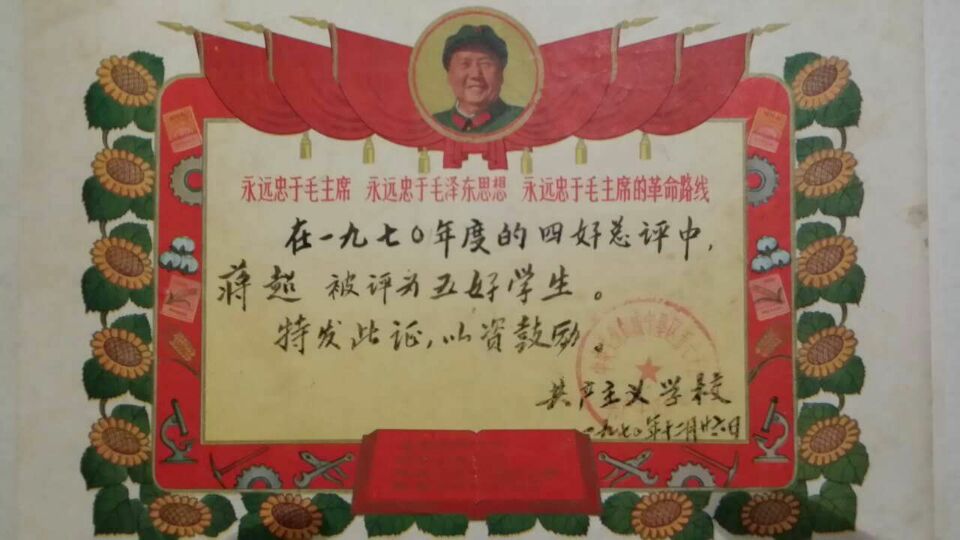 永远忠于毛主席 永远忠于毛泽东思想 永远忠于毛主席的革命路线
在一九七〇年度的四好总评中，
蒋超 被评为五好学生。
特发此证，以资鼓励。
共产主义学校
一九七〇年十二月廿六日